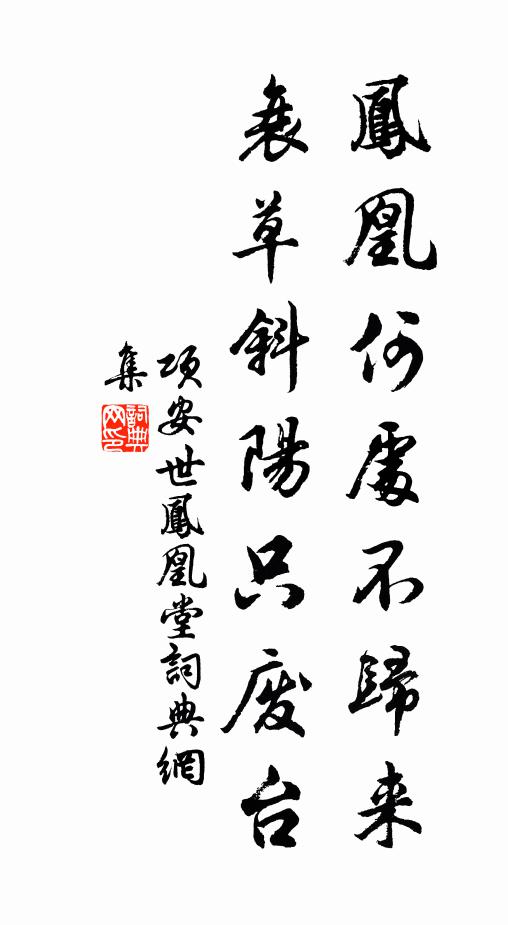 鳳凰何處不歸来
衰草斜陽只废台
項安世鳳凰堂詞典網
集
詞典
网印